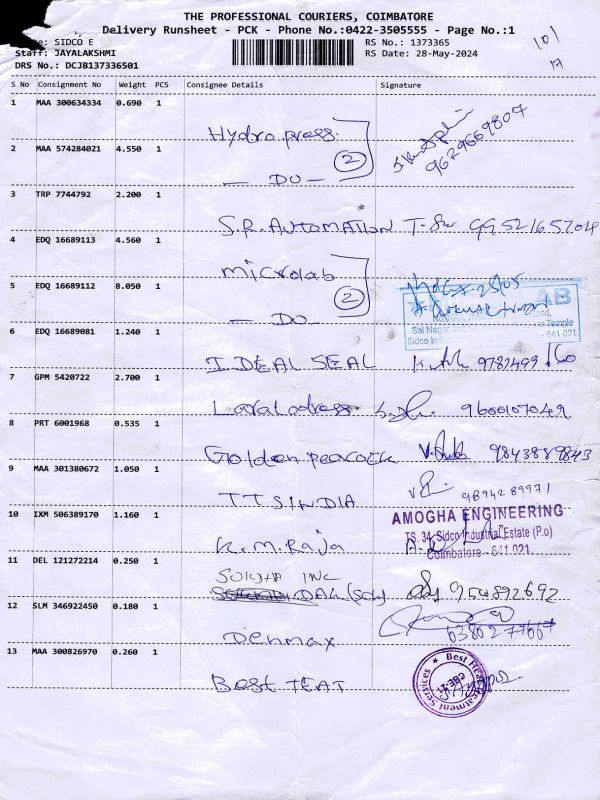 THE PROFESSIONAL COURIERS, COIMBATORE
Delivery Runsheet - PCK - Phone No.:0422-3505555 - Page No.:1
SIDCO E
RS No.: 1373365
Staff: JAYALAKSHMI
RS Date: 28-May-2024
101
DRS No.: DCJB137336501
S No Consignment No Weight PCS Consignee Details Signature
1 MAA 300634334 0.690 1 Hydro press 9629669807
2 MAA 574284021 4.550 1 - DO - 2
3 TRP 7744792 2.200 1 S.R. AUTOMATION 9952165704
4 EDQ 16689113 4.560 1 microlab
5 EDQ 16689112 8.050 1 - DO - 2
AB
Temple
Sidco Ind 641 021
6 EDQ 16689081 1.240 1 IDEAL SEAL
7 GPM 5420722 2.700 1 9600107049
8 PRT 6001968 0.535 1 Golden peacock 9843889843
9 MAA 301380672 1.050 1 TTS INDIA 9894289971
AMOGHA ENGINEERING
TS, 34, Sidco Industrial Estate (P.o)
Coimbatore - 641 021.
10 IXM 506389170 1.160 1 K.M. Raja
11 DEL 121272214 0.250 1 INC
12 SLM 346922450 0.180 1 Denmax
13 MAA 300826970 0.260 1 Best TEAT
Best Heat Treatment Services
CBE-21